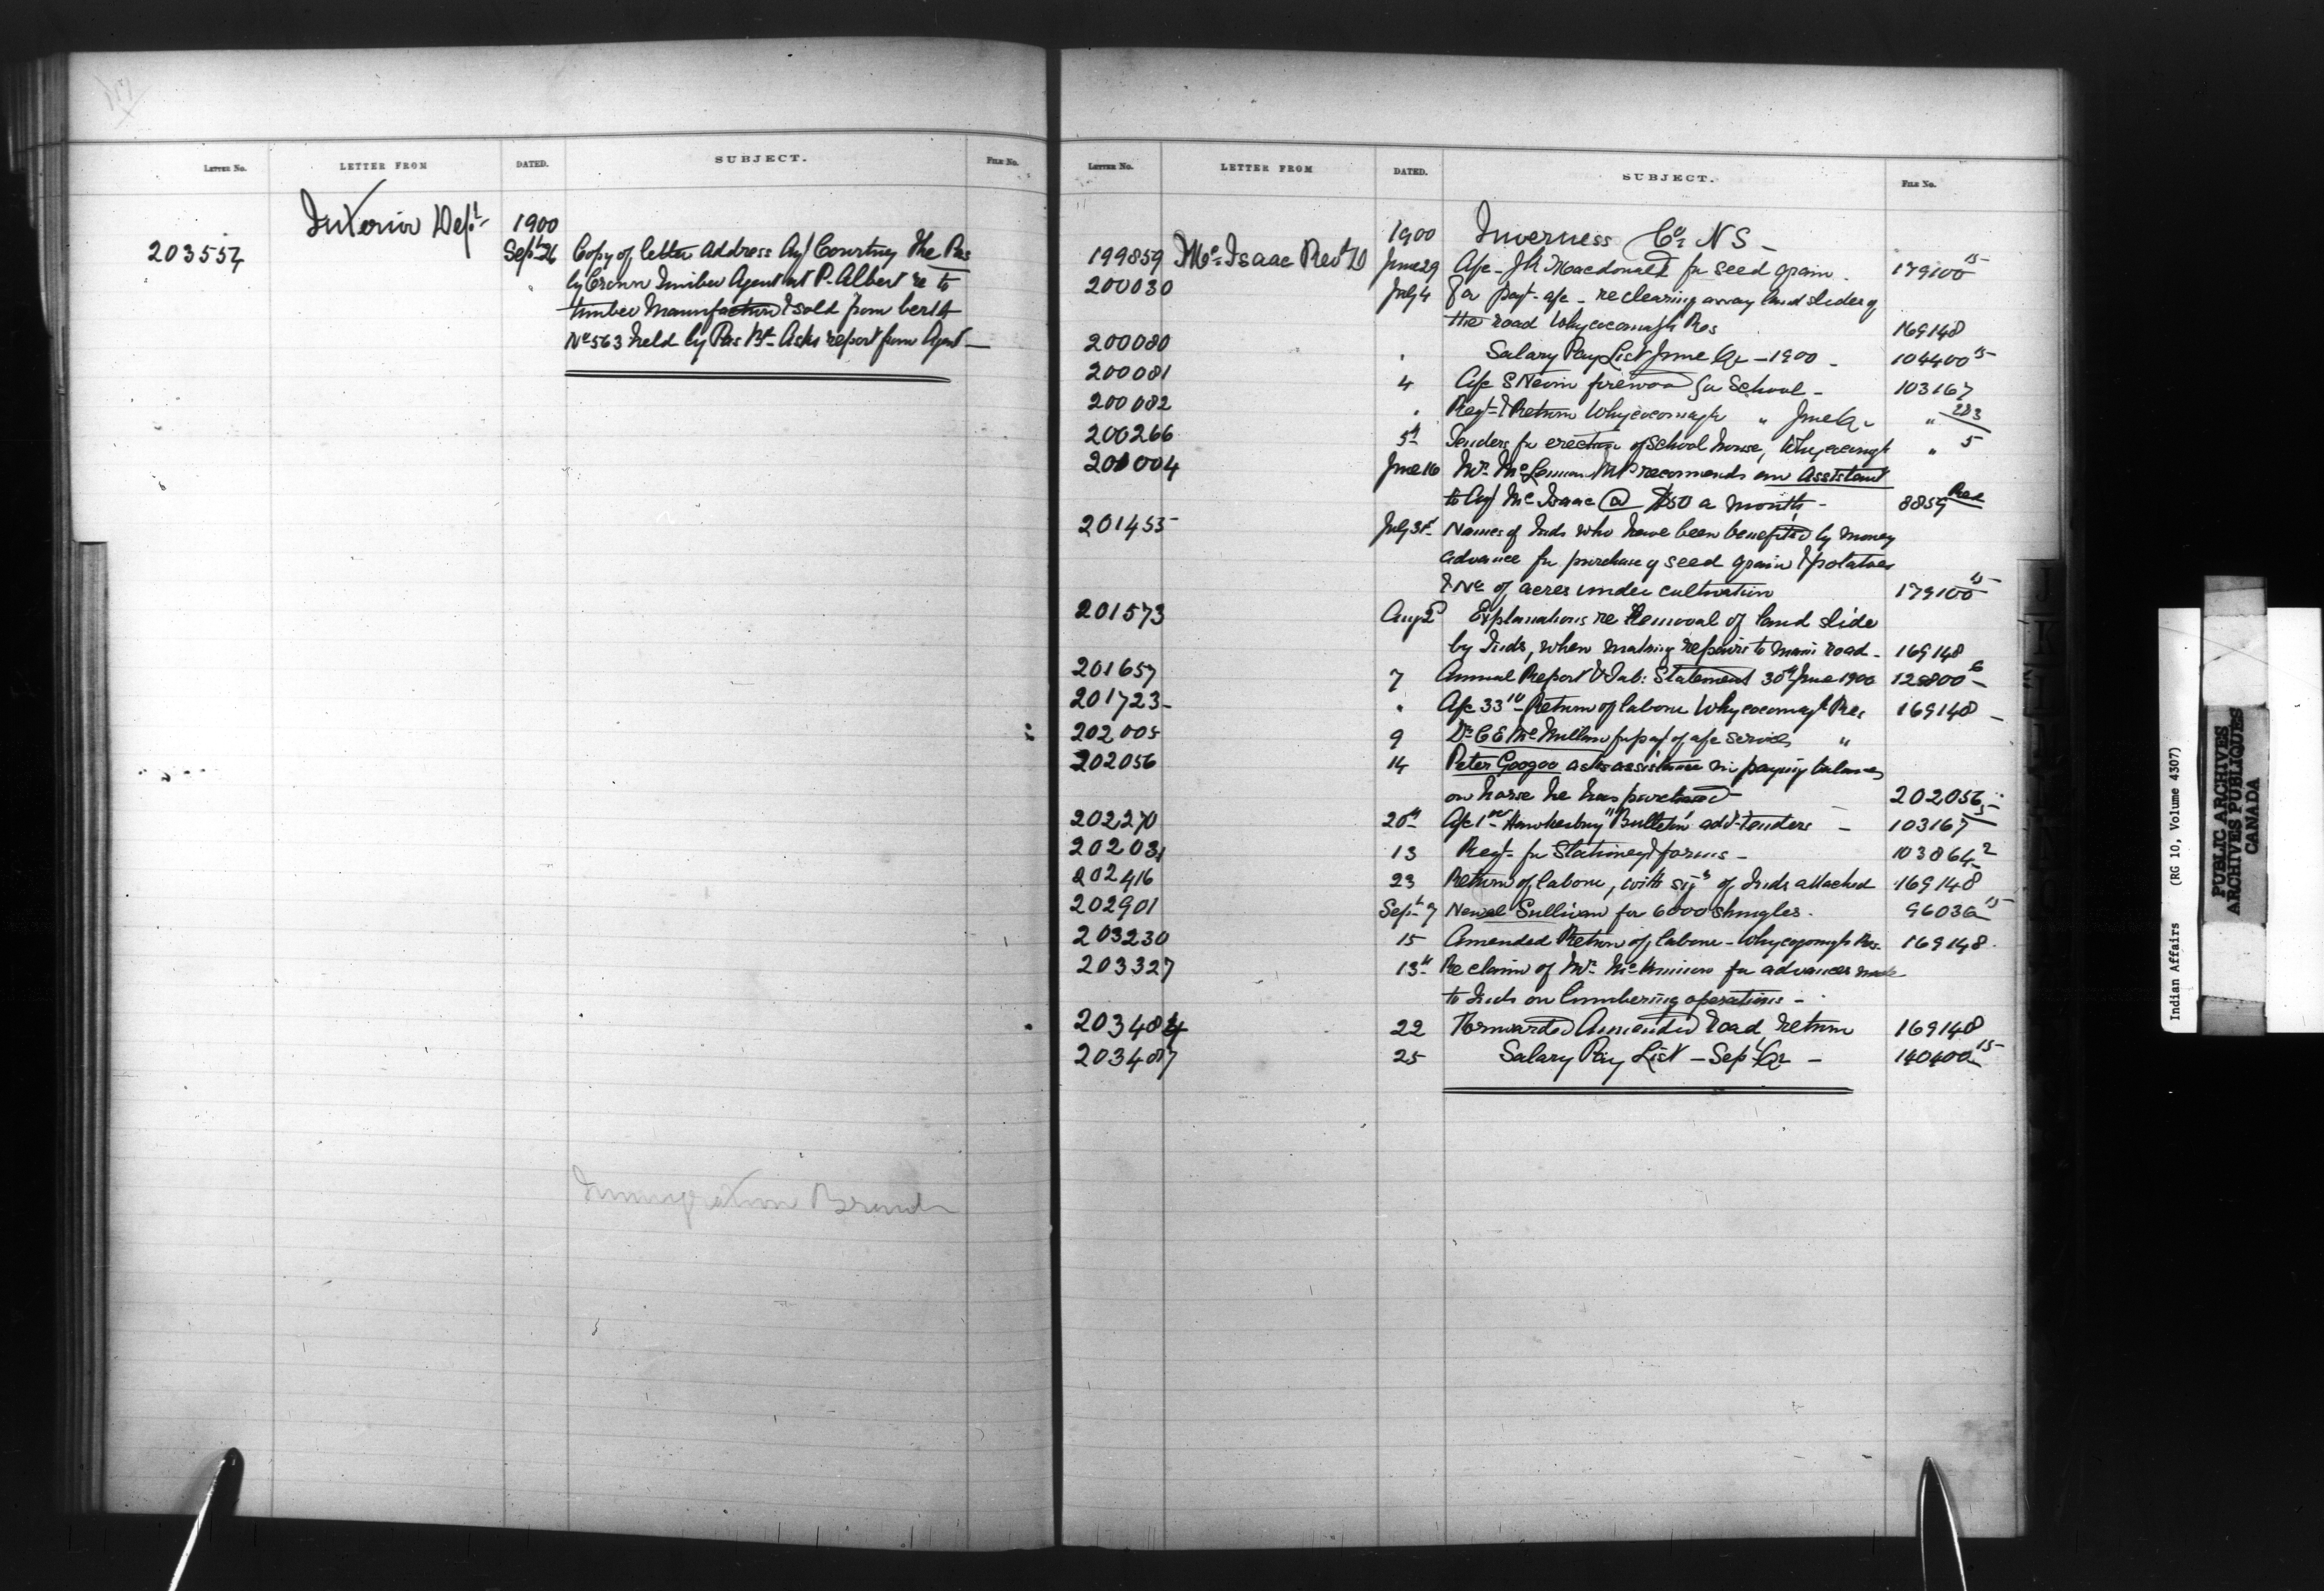 LETTER NO. LETTER FROM DATED. SUBJECT. FILE NO.
Interior Dept 1900
203554 Sept 26 Copy of letter address Agt Courtney The Pas
by Crown Timber Agent at P. Albert re to
timber Manufactured & sold from berth
No 563 held by Pas Bd Asks report from Agent —
Immigration Branch
LETTER NO. LETTER FROM DATED. SUBJECT. FILE NO.
1900 Inverness Co. N S —
199859 McIsaac Revd D June 29 A/c - J R Macdonald for seed grain . 179100 15
200030 July 4 For payt a/c - re clearing away land slides of
the road Whycocomagh Res 169148
200080 " Salary Pay List June Qr - 1900 - 104400 15
200081 4 A/c S Nevin firewood for School - 103167
200082 " Reqt & Return Whycocomagh " June Qr " 283
200266 5th Tenders for erection of School house, Whycocomagh " 5
201004 June 16 Mr McLennan MP recommends an Assistant
to Agt McIsaac @ $50 a month - 8859
201455 July 31st Names of Inds who have been benefited by money
advance for purchase of seed grain & potatoes
& No of acres under cultivation 179100 15
201573 Aug 2d Explanations re Removal of land slide
by Inds, when making repairs to main road - 169148
201657 7 Annual Report & Tab: Statement 30th June 1900 128800 6
201723 " A/c 33 10 Return of labour Whycocomagh Res 169148
202005 9 Dr C E McMillan for pay of a/c services "
202056 14 Peter Googoo asks assistance in paying balance
on horse he has purchased 202056
202270 20th A/c 1 00 Hawkesbury "Bulletin" advt tenders - 103167 5
202031 13 Reqt for Stationery & forms - 103864 2
202416 23 Return of labour, with sigs of Inds attached 169148
202901 Sept 7 Newel Sullivan for 6000 shingles . 96036 15
203230 15 Amended Return of labour - Whycocomagh Res. 169148
203327 13th Re claim of Mr McKinnon for advances made
to Inds on lumbering operations -
203484 22 Forwarded Amended road return 169148
203487 25 Salary Pay List - Sept Qr - 140400 15
Indian Affairs (RG 10, Volume 4307)
PUBLIC ARCHIVES
ARCHIVES PUBLIQUES
CANADA